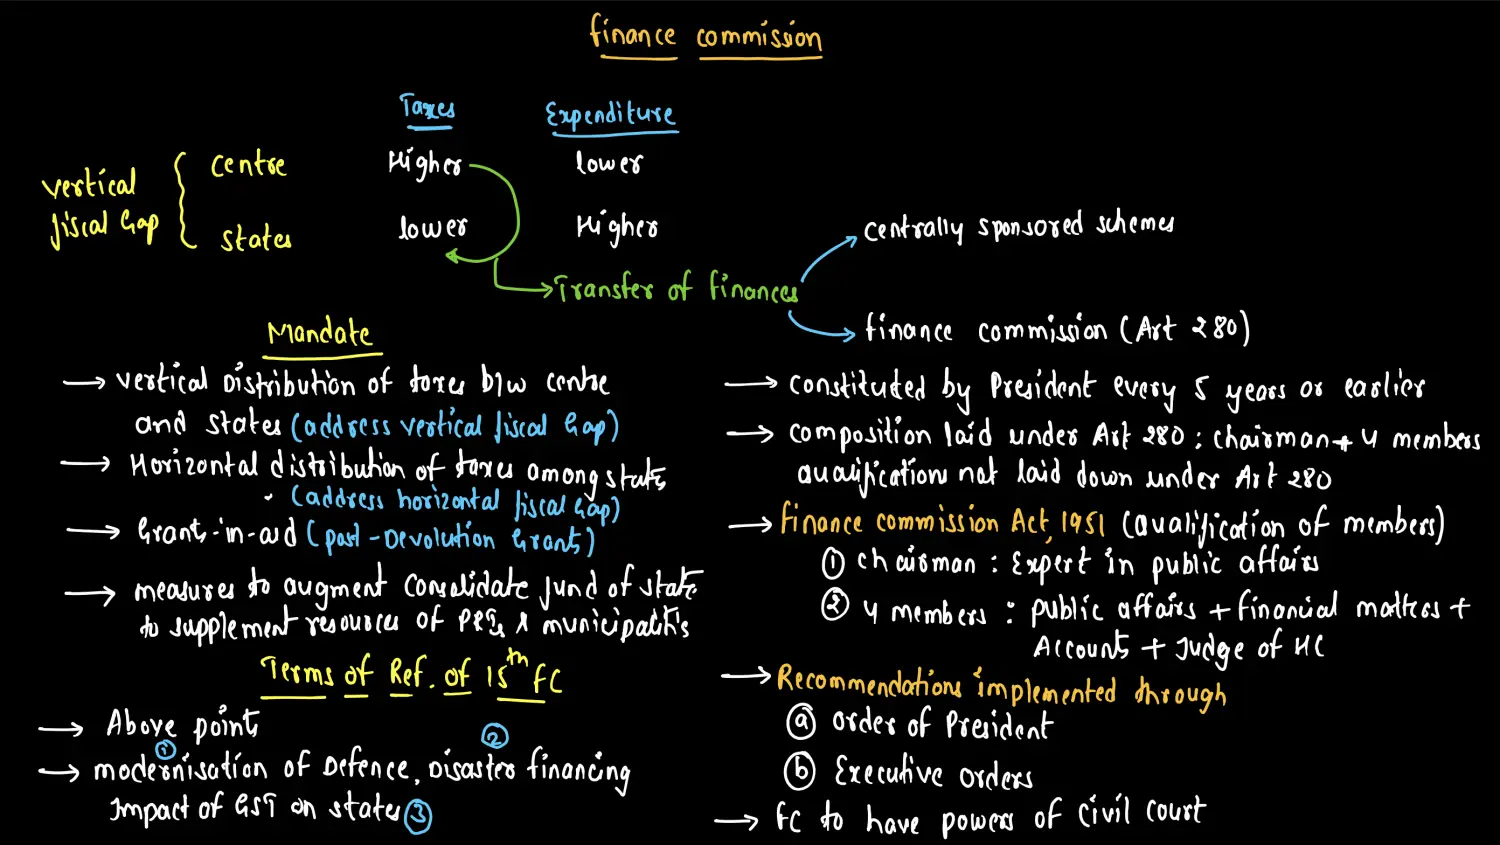 Finance Commission
Taxes Expenditure
Vertical Fiscal Gap
Centre Higher Lower
States Lower Higher
Transfer of Finances
Centrally Sponsored Schemes
Finance Commission (Art 280)
Mandate
→ Vertical Distribution of taxes b/w Centre
and States (address Vertical Fiscal Gap)
→ Horizontal distribution of taxes among states
(address horizontal fiscal Gap)
→ Grants-in-aid (Post-Devolution Grants)
→ measures to augment Consolidate Fund of state
to supplement resources of PRIs & municipalities
Terms of Ref. of 15th FC
→ Above point
→ modernisation of Defence, Disaster financing
① ②
Impact of GST on states ③
→ Constituted by President every 5 years or earlier
→ Composition laid under Art 280 : Chairman + 4 members
Qualifications not laid down under Art 280
→ Finance Commission Act, 1951 (Qualification of members)
① Chairman : Expert in public affairs
② 4 members : public affairs + financial matters +
Accounts + Judge of HC
→ Recommendations implemented through
ⓐ Order of President
ⓑ Executive Orders
→ FC to have powers of Civil Court